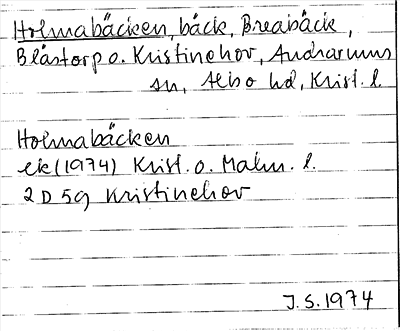 Holmabäcken, bäck, Breabäck,
Blåstorp o. Kristinehov, Andrarums
sn, Albo hd, Krist. l.
Holmabäcken
ek (1974) Krist. o. Malm. l.
2 D 5g Kristinehov
J.S. 1974